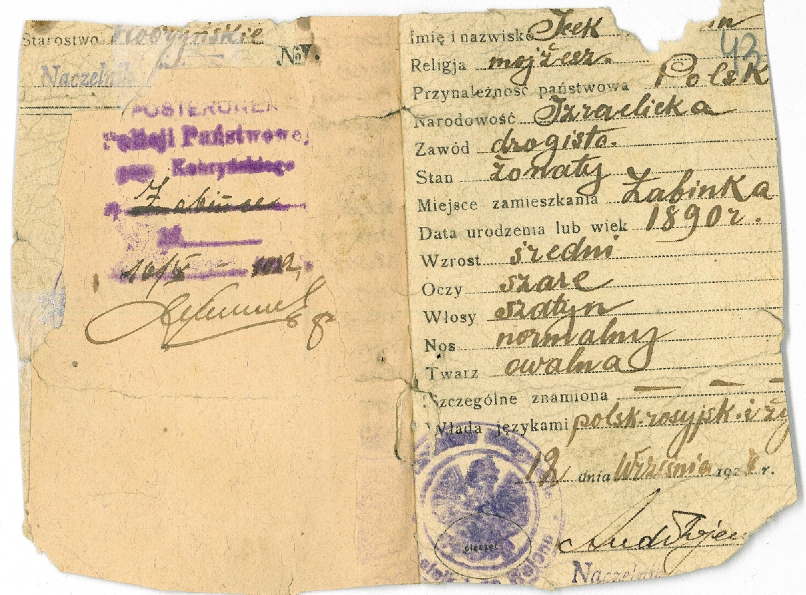 Starostwo Kobryńskie
№
Naczelnik
POSTERUNEK
Policji Państwowej
pow. Kobryńskiego
w Żabince
16/V
Imię i nazwisko Icek
43
Religja mojżesz.
Przynależność państwowa Polsk
Narodowość Izraelicka
Zawód drogista.
Stan żonaty
Miejsce zamieszkania Żabinka
Data urodzenia lub wiek 1890 r.
Wzrost średni
Oczy szare
Włosy szatyn
Nos normalny
Twarz owalna
Szczególne znamiona — — —
Włada językami polsk. rosyjsk. i ży
12 dnia Września 192 r.
pieczęć
Naczelnik